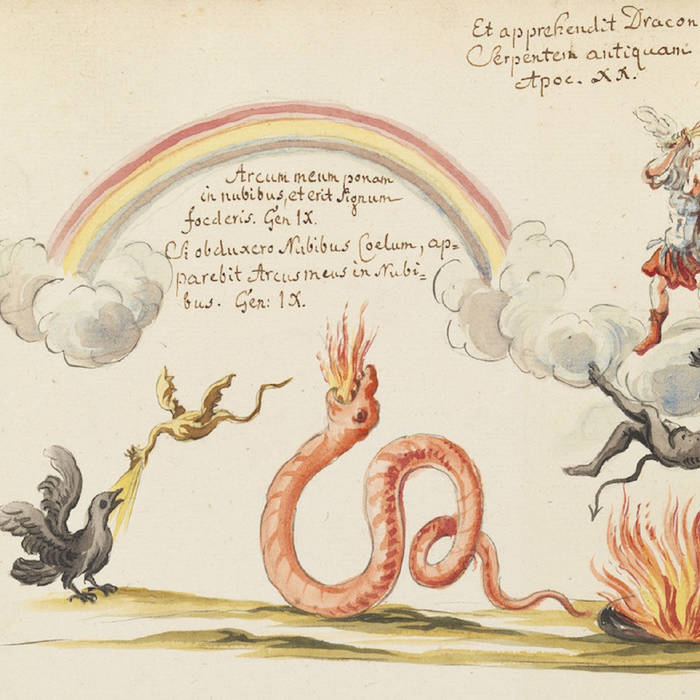 Et apprehendit Dracon
Serpentem antiquam
Apoc. XX.
Arcum meum ponam
in nubibus, et erit signum
foederis. Gen IX.
Si obduxero Nubibus Coelum, ap=
parebit Arcus meus in Nubi=
bus. Gen: IX.